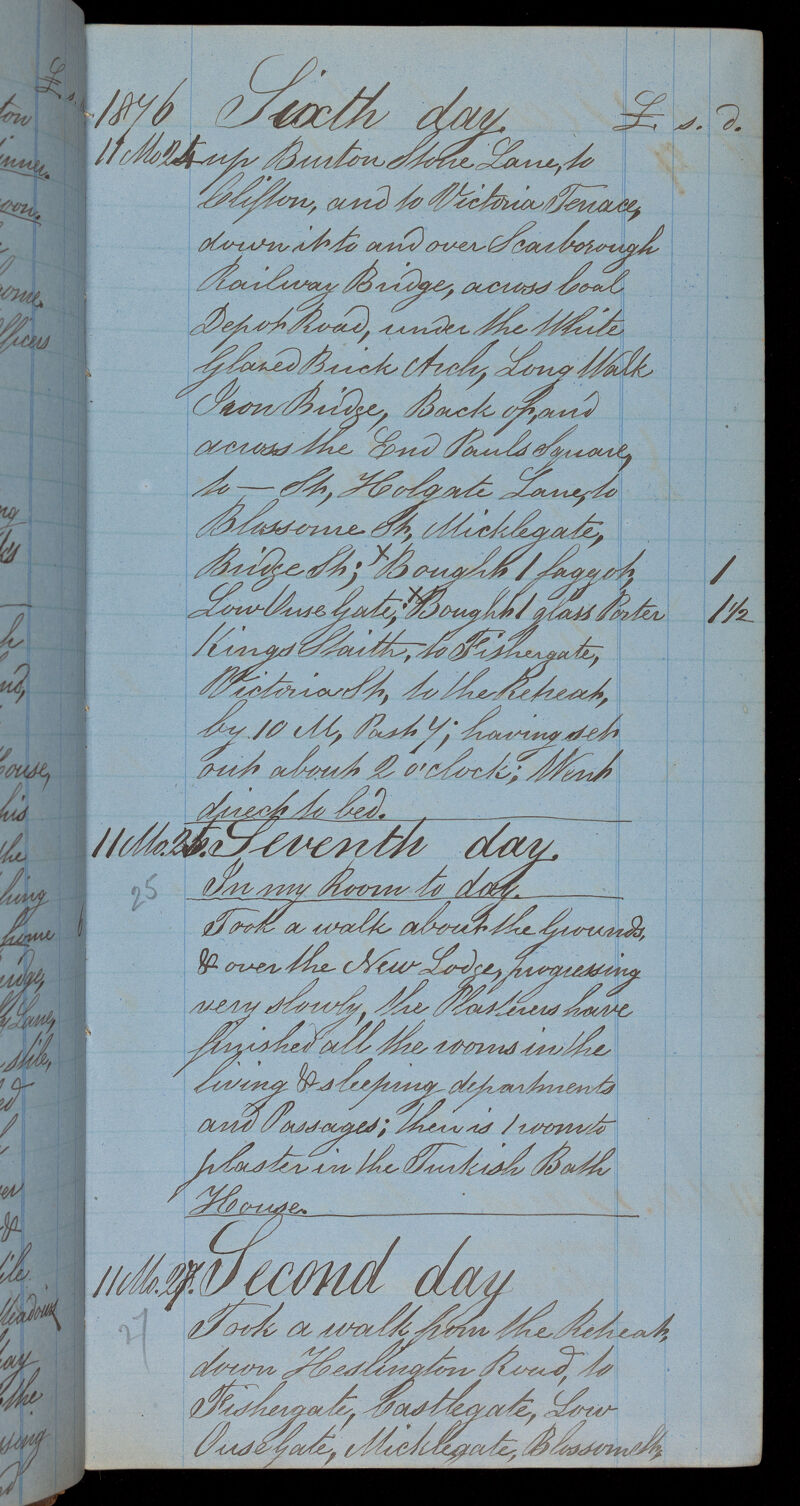 1876 Sixth day. £. s. d.
11 Mo 24 up Burton Stone Lane, to
Clifton, and to Victoria Terrace,
down it to and over Scarborough
Railway Bridge, across Coal
Depot Road, under the White
Glazed Brick Arch, Long Walk
Iron Bridge, Back of, and
across the End Pauls Square,
to — St, Holgate Lane, to
Blossome St, Micklegate,
Bridge St; x Bought 1 faggot, 1
Low Ouse Gate; x Bought 1 glass Porter 1 1/2
Kings Staith, to Fishergate,
Victoria St, to the Retreat,
by 10 M, Past 4; having set
out about 2 o'clock; Went
direct to bed.
11 Mo. 25. Seventh day.
25 In my Room to day.
Took a walk about the Grounds,
& over the New Lodge, progressing
very slowly, the Plasterers have
finished all the rooms in the
living & sleeping departments
and Passages; their is 1 room to
plaster in the Turkish Bath
House.
11 Mo. 27. Second day
27 Took a walk from the Retreat,
down Heslington Road, to
Fishergate, Castlegate, Low
Ouse Gate, Micklegate, Blossom St,